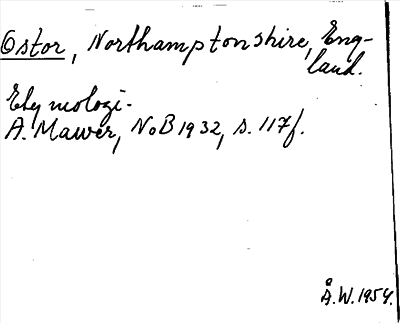 Ostor, Northamptonshire, Eng-
land.
Etymologi.
A. Mawer, NoB 1932, s. 117f.
Å.W. 1954.